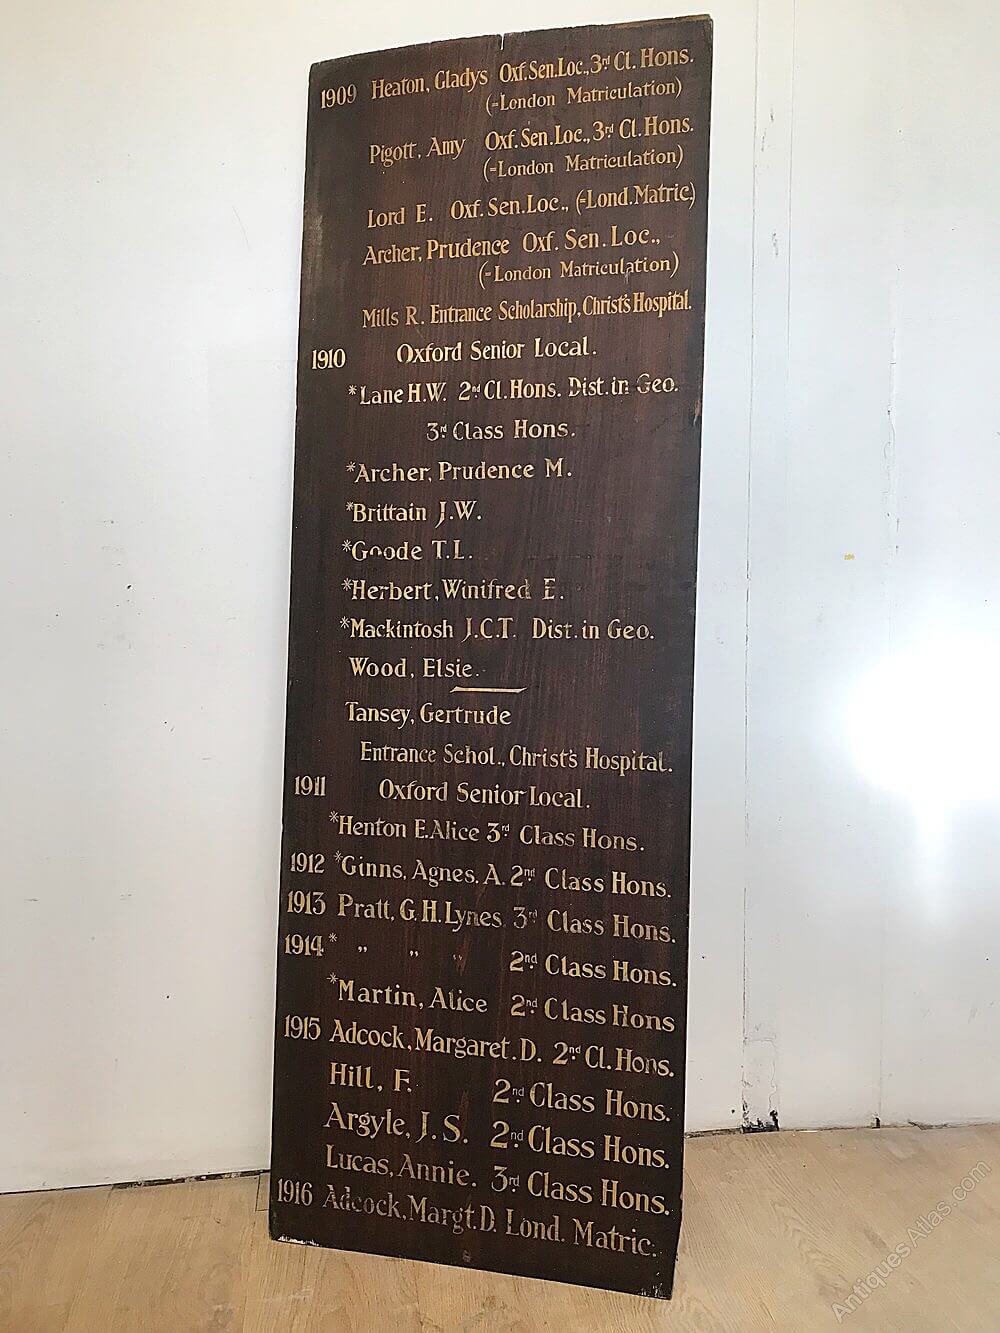 1909 Heaton, Gladys Oxf. Sen. Loc., 3rd Cl. Hons.
(=London Matriculation)
Pigott, Amy Oxf. Sen. Loc., 3rd Cl. Hons.
(=London Matriculation)
Lord E. Oxf. Sen. Loc., (=Lond. Matric.)
Archer, Prudence Oxf. Sen. Loc.,
(=London Matriculation)
Mills R. Entrance Scholarship, Christ's Hospital.
1910 Oxford Senior Local.
*Lane H.W. 2nd Cl. Hons. Dist. in Geo.
3rd Class Hons.
*Archer, Prudence M.
*Brittain J.W.
*Goode T.L.
*Herbert, Winifred E.
*Mackintosh J.C.T. Dist. in Geo.
Wood, Elsie.
Tansey, Gertrude
Entrance Schol., Christ's Hospital.
1911 Oxford Senior Local.
*Henton E. Alice 3rd Class Hons.
1912 *Ginns, Agnes. A. 2nd Class Hons.
1913 Pratt, G. H. Lynes. 3rd Class Hons.
1914 * „ „ „ 2nd Class Hons.
*Martin, Alice 2nd Class Hons
1915 Adcock, Margaret. D. 2nd Cl. Hons.
Hill, F. 2nd Class Hons.
Argyle, J. S. 2nd Class Hons.
Lucas, Annie. 3rd Class Hons.
1916 Adcock, Margt. D. Lond. Matric.
Antiques Atlas.com